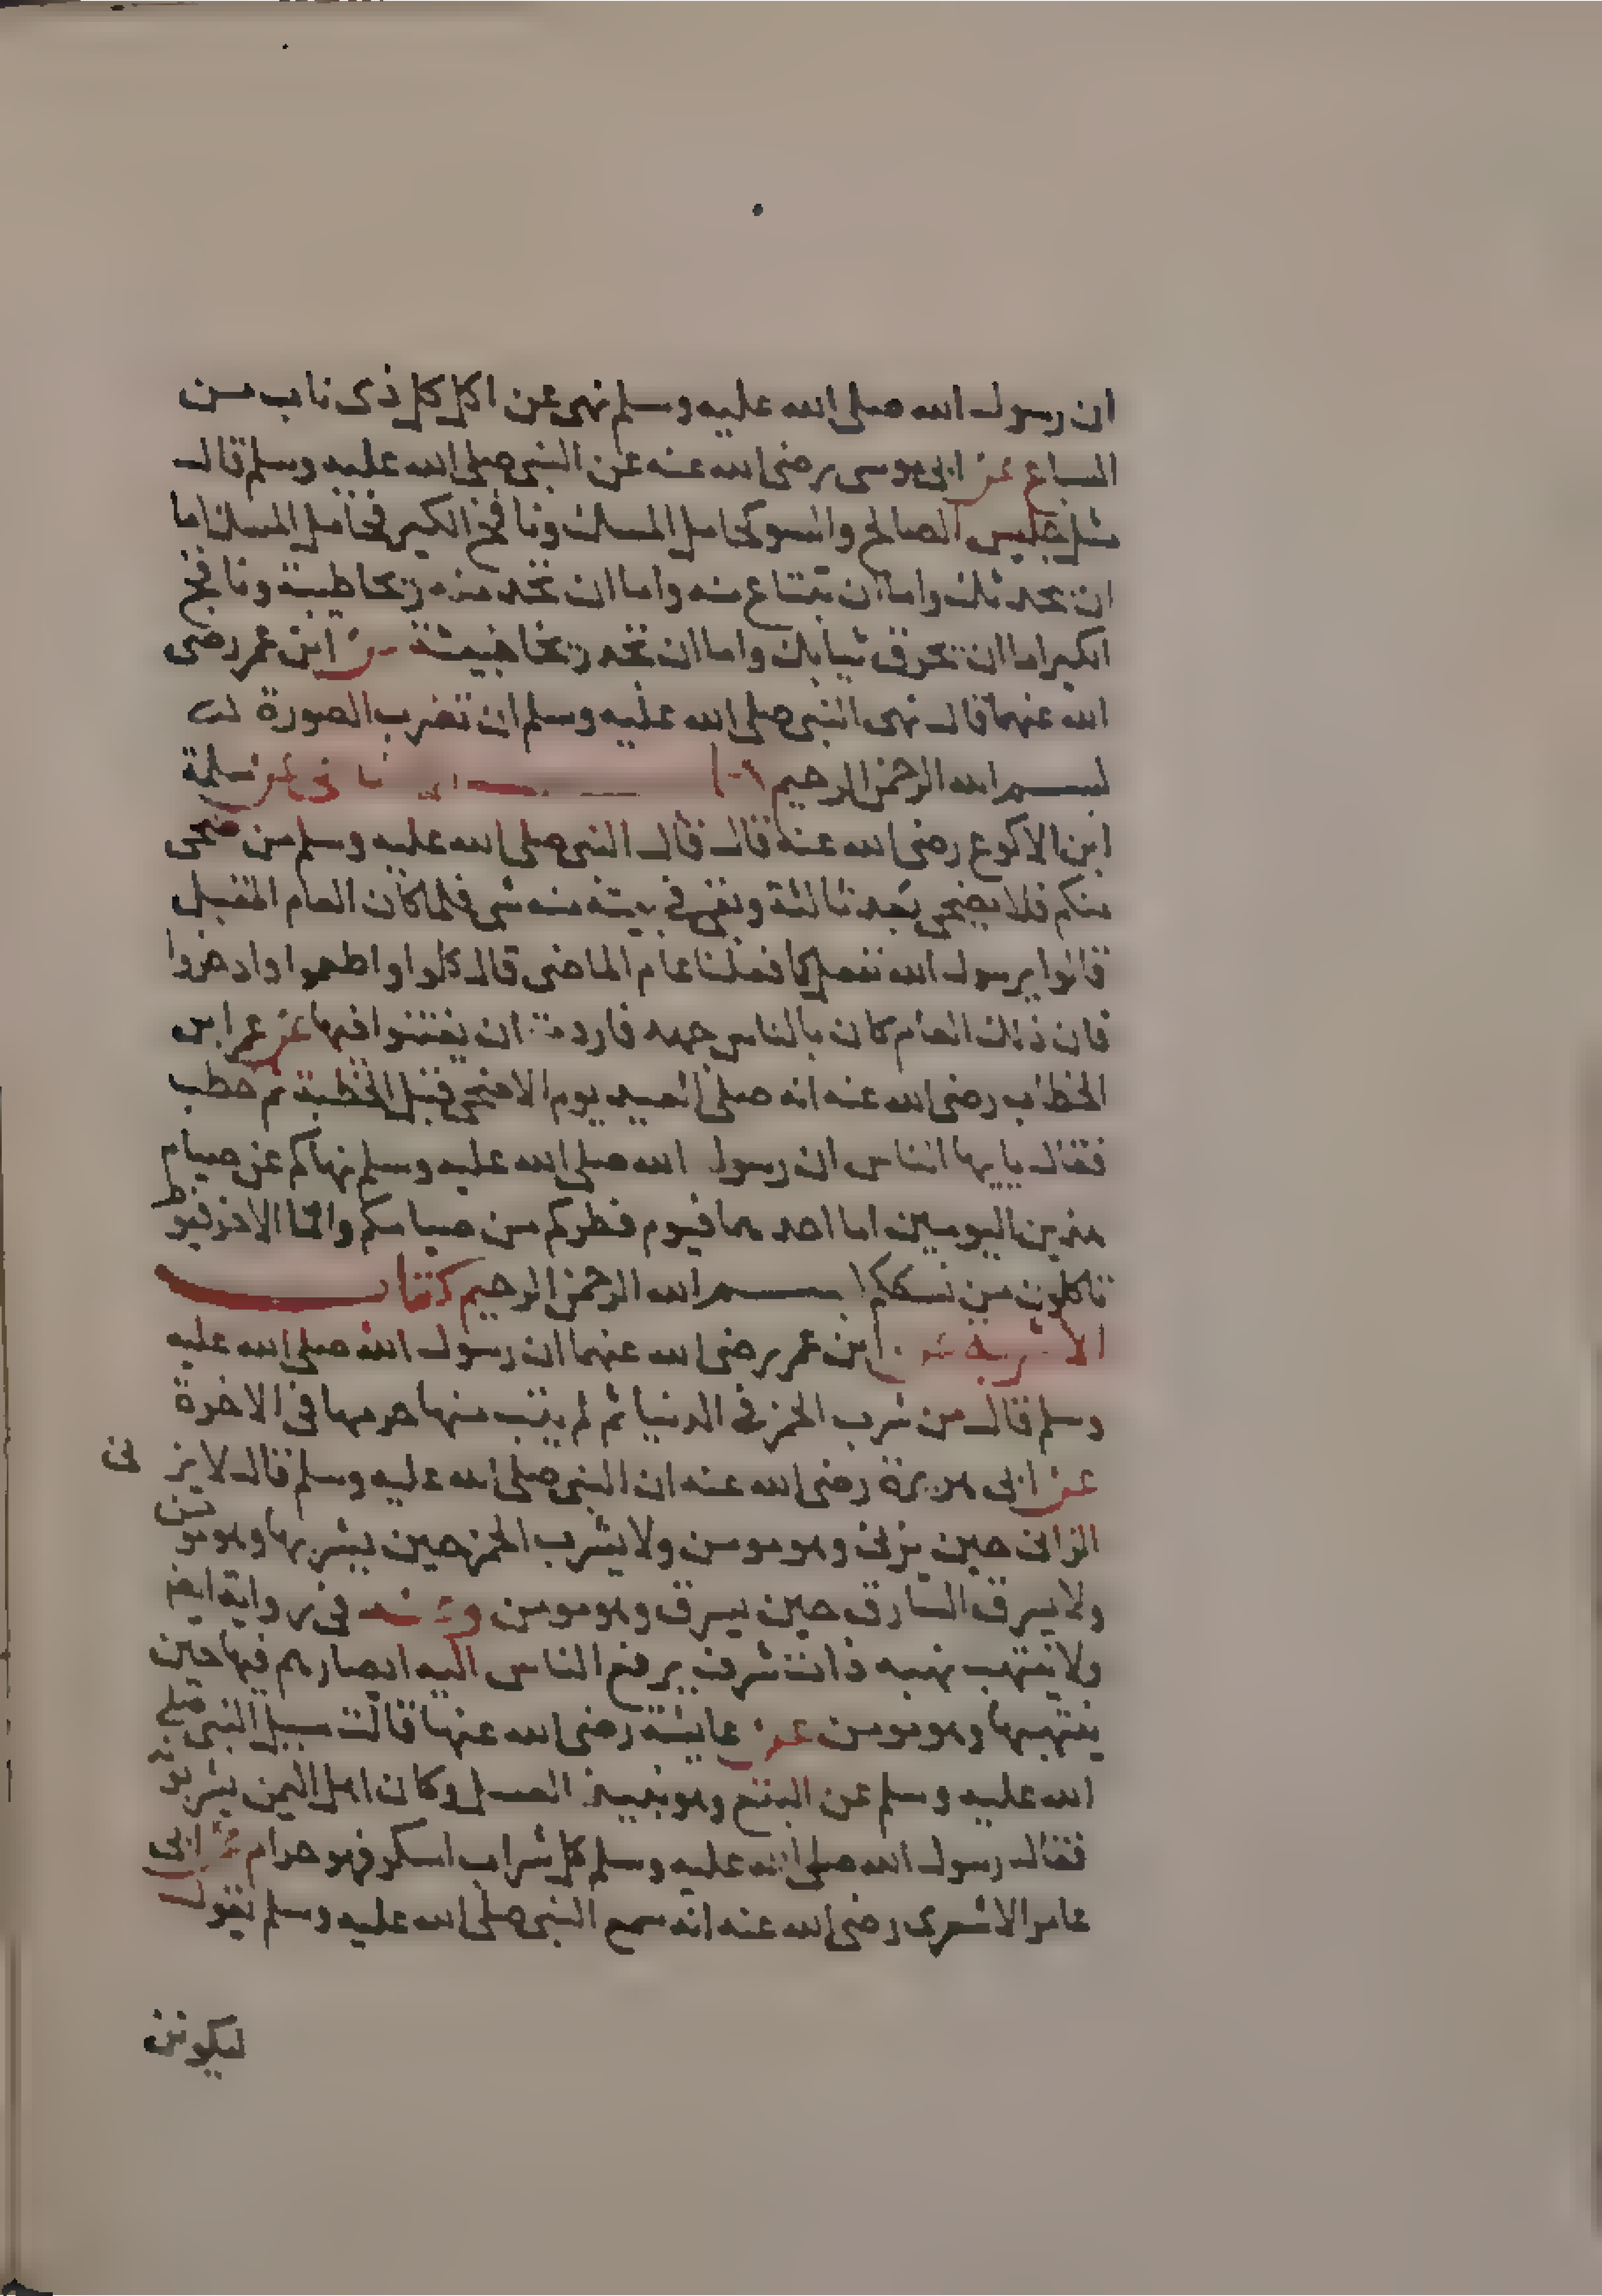 ان رسول الله صلى الله عليه وسلم نهى عن اكل كل ذى ناب من
السباع عن ابى موسى رضى الله عنه عن النبى صلى الله عليه وسلم قال
مثل جليس الصالح والسو كحامل المسك ونافخ الكير فحامل المسك اما
ان يحذيك واما ان تبتاع منه واما ان تجد منه ريحا طيبة ونافخ
الكير اما ان يحرق ثيابك واما ان تجد ريحا خبيثة عن ابن عمر رضى
الله عنهما قال نهى النبى صلى الله عليه وسلم ان تضرب الصورة
بسم الله الرحمن الرحيم عن سلمة
ابن الاكوع رضى الله عنه قال قال النبى صلى الله عليه وسلم من ضحى
منكم فلا يضحى بعد ثالثة وبقى فى بيته منه شى فلما كان العام المقبل
قالوا يرسول الله نفعل كما فعلنا عام الماضى قال كلوا واطعموا وادخروا
فان ذلك العام كان بالناس جهد فاردت ان يعينوا فيها عن عمر ابن
الخطاب رضى الله عنه انه صلى العيد يوم الاضحى قبل الخطبة ثم خطب
فقال يايها الناس ان رسول الله صلى الله عليه وسلم نهاكم عن صيام
هذين اليومين اما احدهما فيوم فطركم من صيامكم واما الاخر فيوم
تاكلون من نسككم بسم الله الرحمن الرحيم كتاب
الاشربة عن ابن عمر رضى الله عنهما ان رسول الله صلى الله عليه
وسلم قال من شرب الخمر فى الدنيا ثم لم يتب منها حرمها فى الاخرة
عن ابى هريرة رضى الله عنه ان النبى صلى الله عليه وسلم قال لا يزنى
الزانى حين يزنى وهو مومن ولا يشرب الخمر حين يشربها وهو مومن
ولا يسرق السارق حين يسرق وهو مومن وعنه فى رواية ايضا
ولا ينتهب نهبه ذات شرف يرفع الناس اليه ابصارهم فيها حين
ينتهبها وهو مومن عن عايشة رضى الله عنها قالت سيل النبى صلى
الله عليه وسلم عن البتع وهو نبيذ العسل وكان اهل اليمن يشربونه
فقال رسول الله صلى الله عليه وسلم كل شراب اسكر فهو حرام عن ابى
عامر الاشعرى رضى الله عنه انه سمع النبى صلى الله عليه وسلم يقول
ليكونن